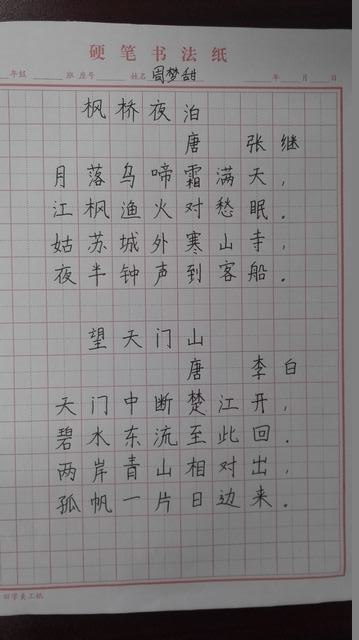 硬笔书法纸
年级 班 座号 姓名 周梦甜 年 月 日
枫桥夜泊
唐 张继
月落乌啼霜满天，
江枫渔火对愁眠。
姑苏城外寒山寺，
夜半钟声到客船。
望天门山
唐 李白
天门中断楚江开，
碧水东流至此回。
两岸青山相对出，
孤帆一片日边来。